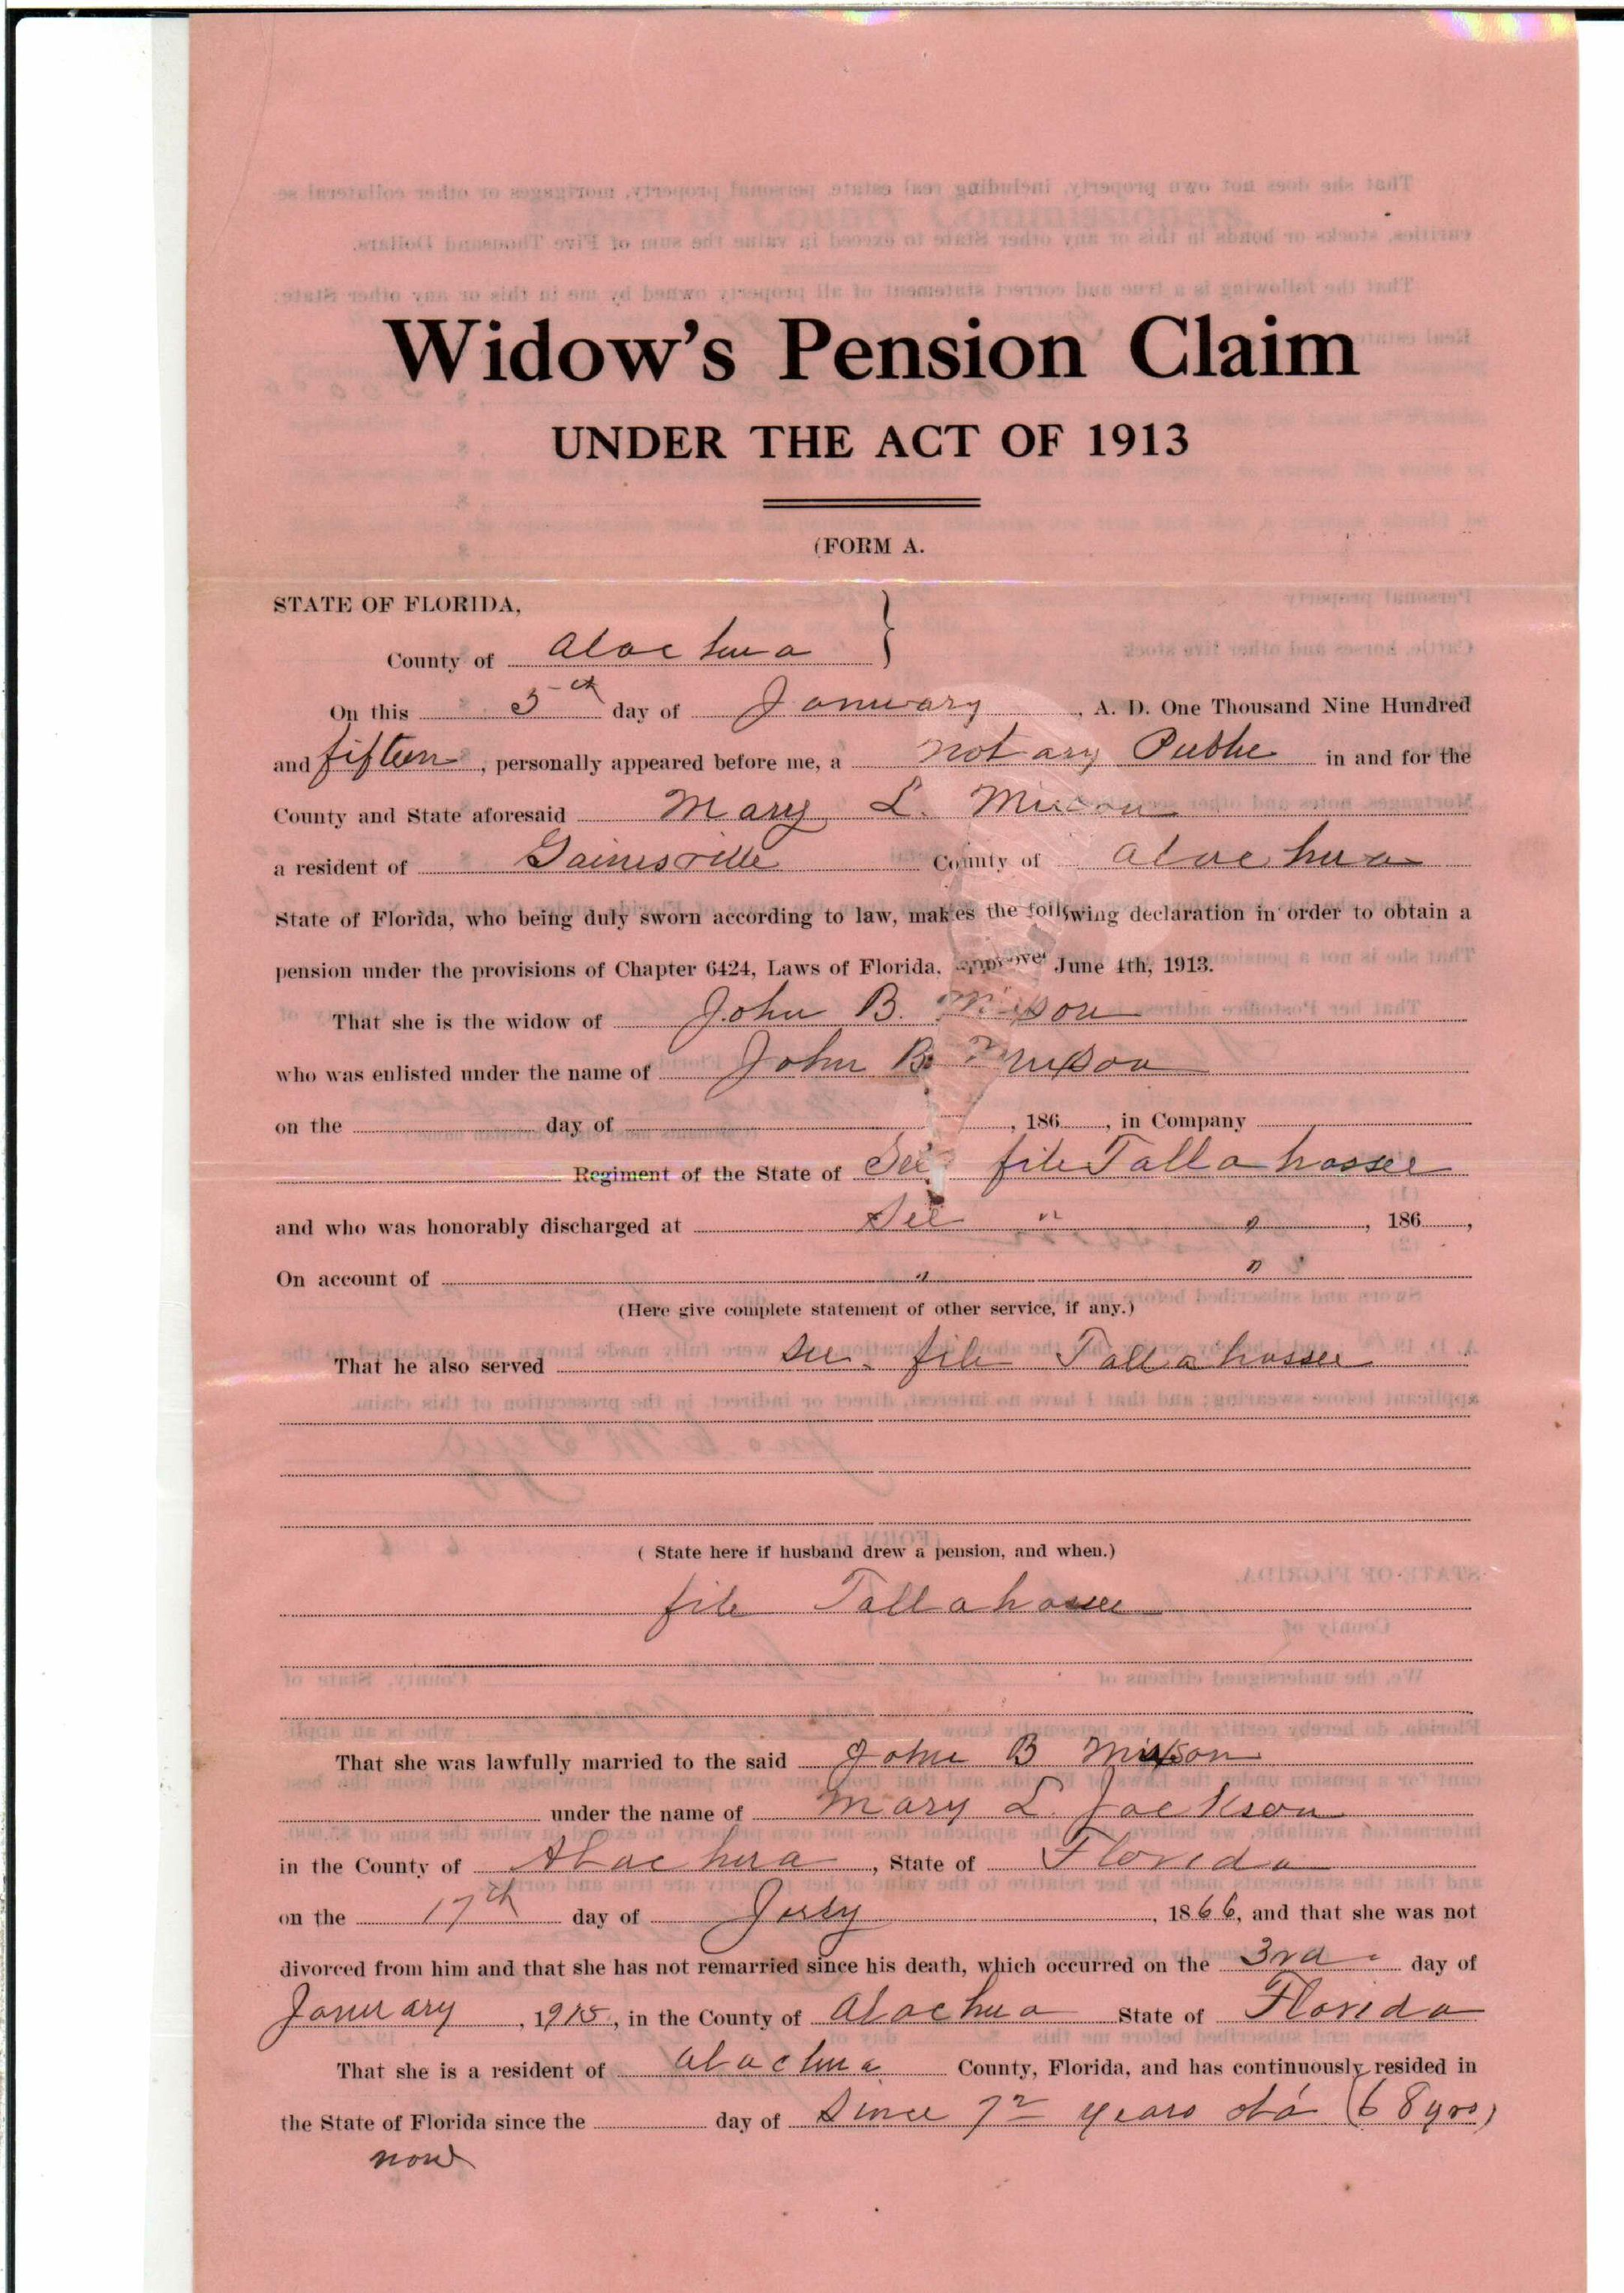 Widow's Pension Claim
UNDER THE ACT OF 1913
(FORM A.
STATE OF FLORIDA,
County of Alachua }
On this 5th day of January , A. D. One Thousand Nine Hundred
and fifteen , personally appeared before me, a Notary Public in and for the
County and State aforesaid Mary L. Mixson
a resident of Gainesville County of Alachua
State of Florida, who being duly sworn according to law, makes the following declaration in order to obtain a
pension under the provisions of Chapter 6424, Laws of Florida, approved June 4th, 1913.
That she is the widow of John B. Mixson
who was enlisted under the name of John B Mixson
on the day of , 186 , in Company
Regiment of the State of See file Tallahassee
and who was honorably discharged at See " " , 186 ,
On account of " "
(Here give complete statement of other service, if any.)
That he also served See file Tallahassee
( State here if husband drew a pension, and when.)
file Tallahassee
That she was lawfully married to the said John B Mixson
under the name of Mary L. Jackson
in the County of Alachua , State of Florida
on the 17th day of July , 1866, and that she was not
divorced from him and that she has not remarried since his death, which occurred on the 3rd day of
January , 1915, in the County of Alachua State of Florida
That she is a resident of Alachua County, Florida, and has continuously resided in
the State of Florida since the day of Since 7 years old (68 yrs)
now